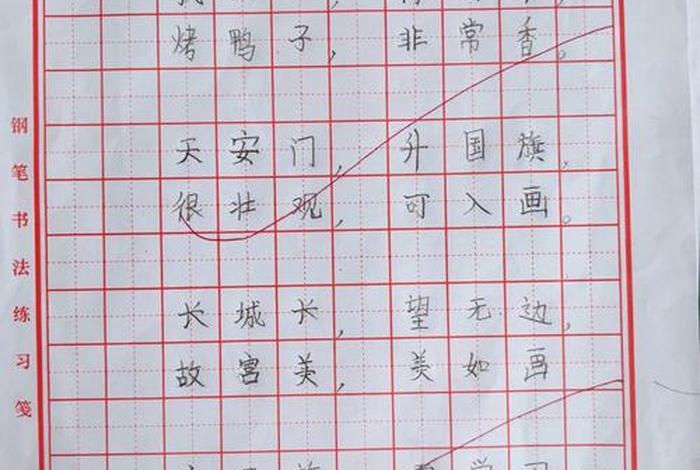 烤鸭子，非常香。
天安门，升国旗，
很壮观，可入画。
长城长，望无边，
故宫美，美如画
钢笔书法练习笺